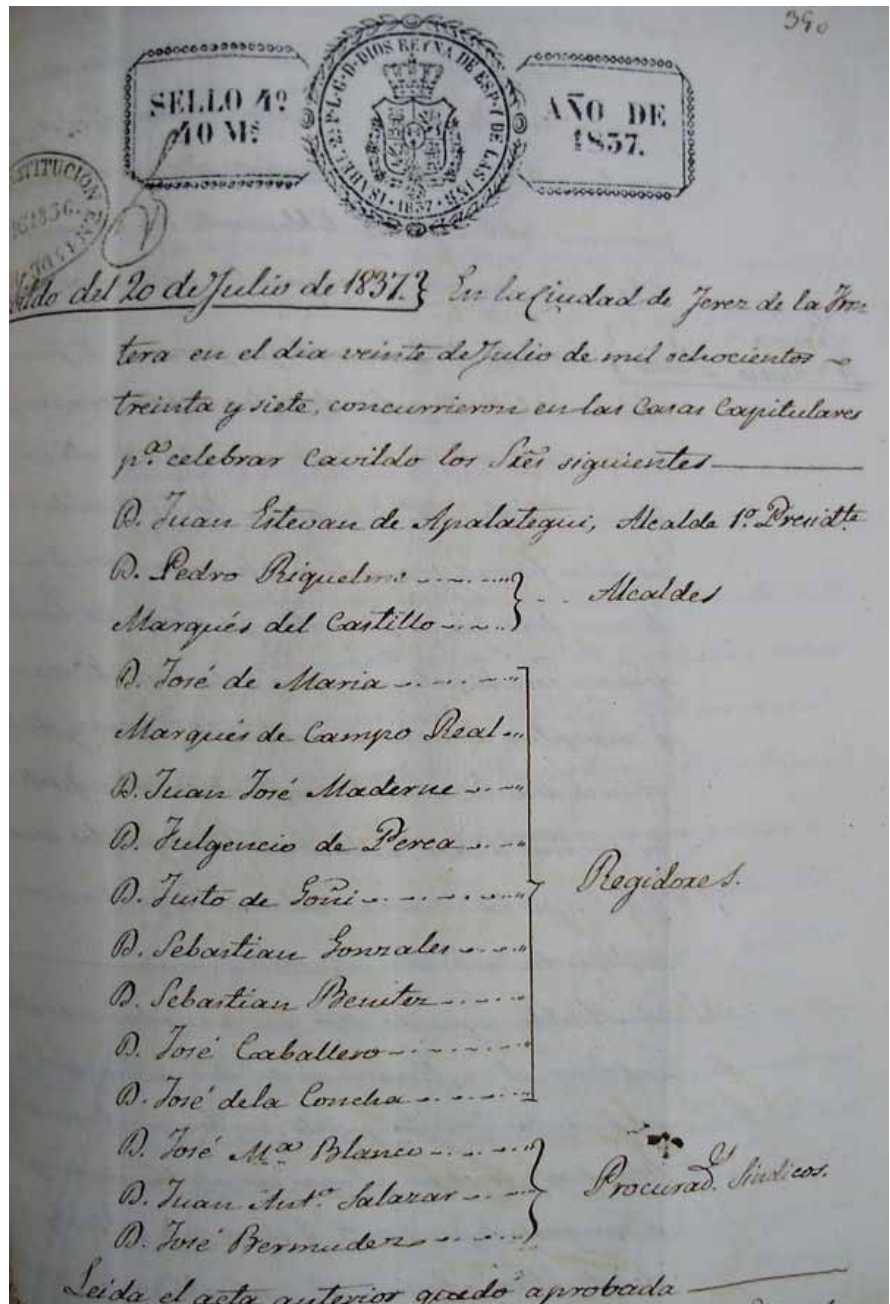 390
SELLO 4º
40 Mˢ
ISABEL 2ª P. L. G. D. DIOS REYNA DE ESP. Y DE LAS IND.
1837
AÑO DE
1837.
Cabildo del 20 de Julio de 1837. En la Ciudad de Jerez de la Fron
tera en el dia veinte de Julio de mil ochocientos
treinta y siete, concurrieron en las Casas Capitulares
pª celebrar Cavildo los Sres siguientes
D. Juan Estevan de Apalategui, Alcalde 1º Presidte
D. Pedro Riquelme
Marqués del Castillo
Alcaldes
D. José de Maria
Marqués de Campo Real
D. Juan José Maderne
D. Fulgencio de Perea
D. Justo de Goñi
D. Sebastian Gonzales
D. Sebastian Benitez
D. José Caballero
D. José dela Concha
Regidores.
D. José Mª Blanco
D. Juan Antº Salazar
D. José Bermudez
Procurad.es Sindicos.
Leida el acta anterior quedó aprobada